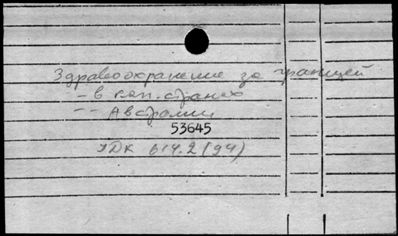 Здравоохранение за границей
- в кап. странах
-- Австралии
53645
УДК 614.2(94)